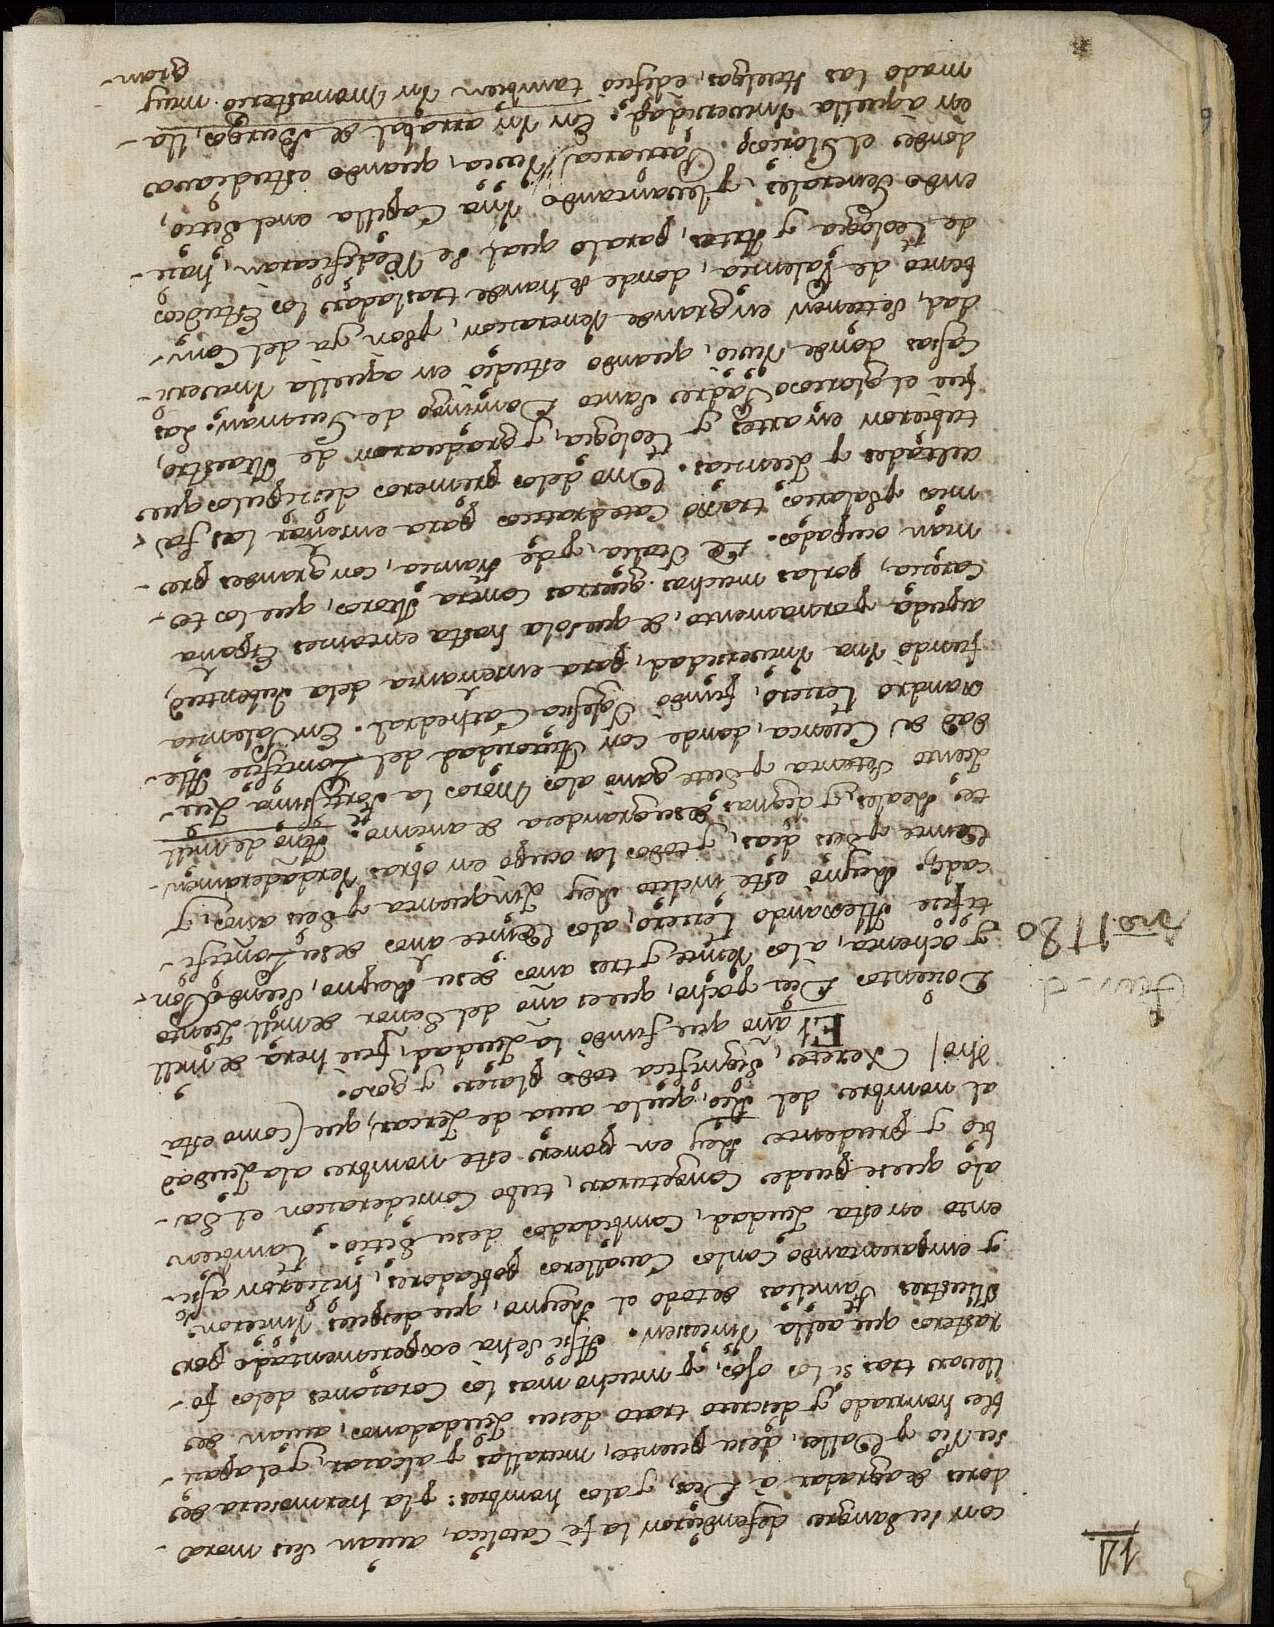 14
con su sangre defendieron la fe Catolica, auian sus mora-
dores de agradar à Dios, y alos hombres: y la hermosura de
su Rio y Valle, desu puente, murallas y alcazar, y el apaci-
ble honrrado y discreto trato desus Ciudadanos, auian de
llevar tras si los ojos, y mucho mas los Corazones delos fo-
rasteros que aella viniesen. Assi se ha experimentado por
Illustres familias de todo el Reyno, que despues vinieron,
y emparentando con los Cavalleros pobladores, hizieron assi-
ento en esta Ciudad, Combidados desu Sitio. Tambien
alo que se puede Congeturar, tubo Consideracion el Sa-
bio y prudente Rey en poner este nombre ala Ciudad
al nombre del Rio, que la auia de Cercar, que (como està
dho) Xerete, significa todo plazer y gozo.
El año que fundò la Ciudad, fue hera de mill
Docientos Diez y ocho, que es año del Señor de mill Ciento
y ochenta, alos veinte y tres años de su Reyno, Siendo Pon-
tifice Alexandro Tercero, alos veinte años de su Pontifi-
cado. Reynò este inclito Rey Cinquenta y seis años, y
veinte y seis dias, y todos los ocupò en obras verdaderamen-
te Reales, y dignas de su grandeza de animo. Año de mill
Ciento Setenta y siete ganò alos Moros la fortissima Ciu-
dad de Cuenca, donde con Autoridad del Pontifice Ale-
xandro tercero, fundò Iglesia Cathedral. En Palencia
fundò vna Vniversidad, para enseñanza dela Jubentud,
ayuda y ornamento, de que sola hasta entonces España
Carecia, por las muchas guerras contra Moros, que los te-
nian ocupados. De Italia, y de francia, con grandes pre-
mios y Salarios traxo Catedraticos para enseñar las fa-
cultades y Ciencias. Vno delos primeros discipulos que
tubieron en artes y Teologia, y graduaron de Maestro,
fue el glorioso Padre Santo Domingo de Guzman. Las
Casas donde viuiò, quando estudiò en aquella Vniversi-
dad, se tienen en grande Veneracion, y son ya del Con-
bento de Palencia, donde se han de trasladar los Estudios
de Teologia y Artes, para lo qual se Redificaron, hazi-
endo Generales, y leuantando vna Capilla en el Sitio,
donde el Glorioso Patriarca viuia, quando estudiaua
en aquella Vniversidad. En vn arrabal de Burgos, lla-
mado las Huelgas, edificò tambien vn Monasterio muy
gran-
fun.d.
Año. 1180